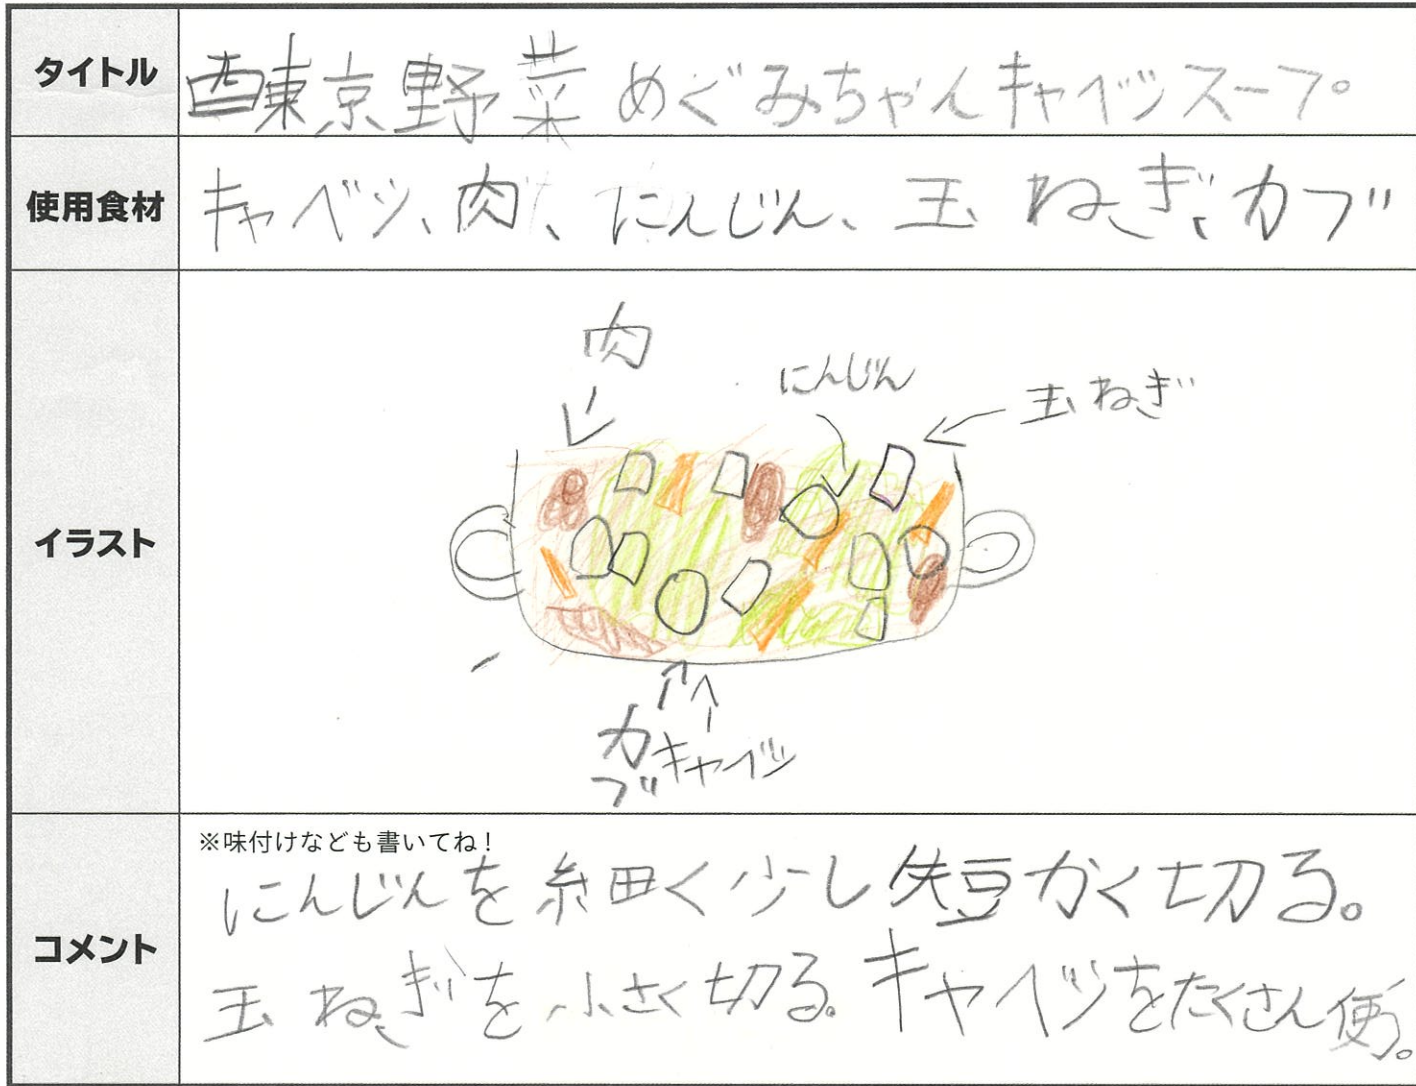 タイトル
西東京野菜めぐみちゃんキャベツスープ
使用食材
キャベツ、肉、にんじん、玉ねぎ、カブ
イラスト
肉
にんじん
玉ねぎ
カブ
キャベツ
コメント
※味付けなども書いてね！
にんじんを細く少し短かく切る。
玉ねぎを小さく切る。キャベツをたくさん使う。